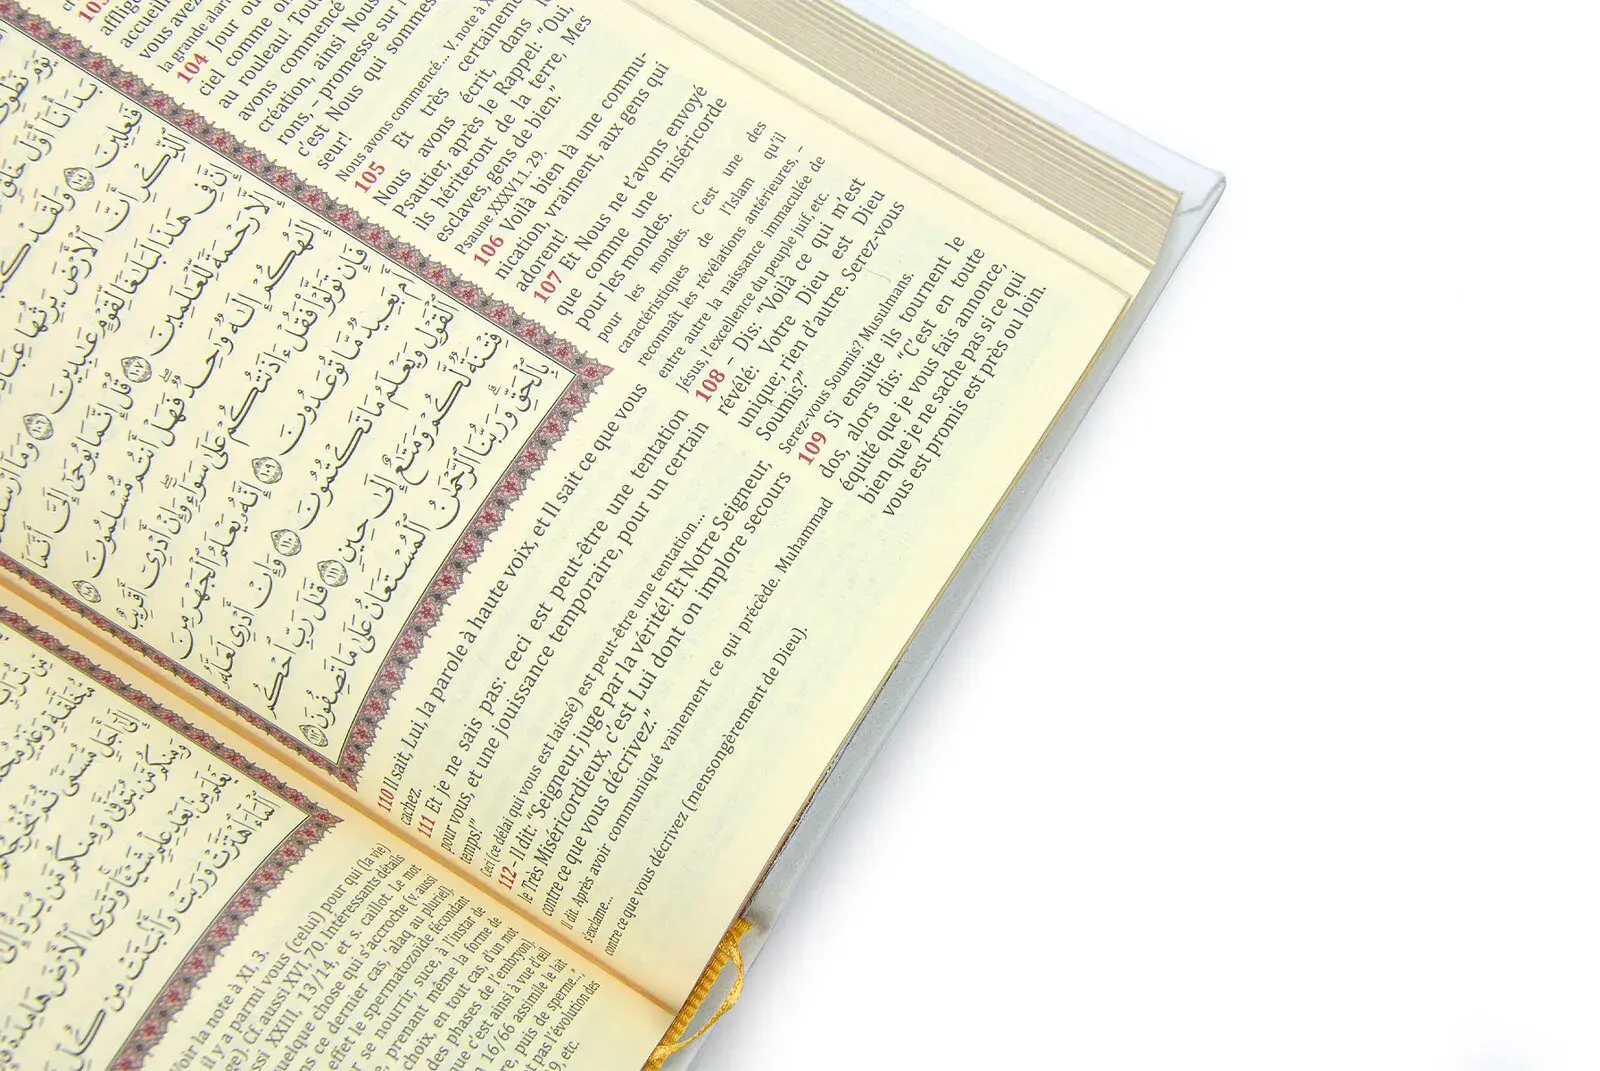 affliger
accueille
vous avez
la grande alarm
104 Jour où
ciel comme on
au rouleau! Tout
avons commencé
création, ainsi Nous
rons, – promesse sur
c'est Nous qui sommes
seur!
Nous avons commencé... V. note à X
105 Et très certainement
Nous avons écrit, dans le
Psautier, après le Rappel: "Oui,
ils hériteront de la terre, Mes
esclaves, gens de bien."
Psaume XXXV11. 29.
106 Voilà bien là une commu-
nication, vraiment, aux gens qui
adorent!
107 Et Nous ne t'avons envoyé
que comme une miséricorde
pour les mondes.
pour les mondes. C'est une des
caractéristiques de l'Islam qu'il
reconnaît les révélations antérieures, –
entre autre la naissance immaculée de
Jésus, l'excellence du peuple juif, etc.
108 – Dis: "Voilà ce qui m'est
révélé: Votre Dieu est Dieu
unique; rien d'autre. Serez-vous
Soumis?"
Serez-vous Soumis? Musulmans.
109 Si ensuite ils tournent le
dos, alors dis: "C'est en toute
équité que je vous fais annonce,
bien que je ne sache pas si ce qui
vous est promis est près ou loin.
110 Il sait, Lui, la parole à haute voix, et Il sait ce que vous
cachez.
111 Et je ne sais pas: ceci est peut-être une tentation
pour vous, et une jouissance temporaire, pour un certain
temps!"
Ceci (ce délai qui vous est laissé) est peut-être une tentation...
112 – Il dit: "Seigneur, juge par la vérité! Et Notre Seigneur,
le Très Miséricordieux, c'est Lui dont on implore secours
contre ce que vous décrivez."
Il dit. Après avoir communiqué vainement ce qui précède. Muhammad
s'exclame...
contre ce que vous décrivez (mensongèrement de Dieu).
بَدَأْنَا أَوَّلَ خَلْقٍ
فَٰعِلِينَ ١٠٤ وَلَقَدْ
ٱلذِّكْرِ أَنَّ ٱلْأَرْضَ يَرِثُهَا عِبَادِيَ
إِنَّ فِى هَٰذَا لَبَلَٰغًا لِّقَوْمٍ عَٰبِدِينَ ١٠٦ وَمَآ أَرْسَلْنَٰكَ
إِلَّا رَحْمَةً لِّلْعَٰلَمِينَ ١٠٧ قُلْ إِنَّمَا يُوحَىٰٓ إِلَىَّ أَنَّمَآ
إِلَٰهُكُمْ إِلَٰهٌ وَٰحِدٌ فَهَلْ أَنتُم مُّسْلِمُونَ ١٠٨
فَإِن تَوَلَّوْا۟ فَقُلْ ءَاذَنتُكُمْ عَلَىٰ سَوَآءٍ وَإِنْ أَدْرِىٓ أَقَرِيبٌ
أَم بَعِيدٌ مَّا تُوعَدُونَ ١٠٩ إِنَّهُۥ يَعْلَمُ ٱلْجَهْرَ مِنَ
ٱلْقَوْلِ وَيَعْلَمُ مَا تَكْتُمُونَ ١١٠ وَإِنْ أَدْرِى لَعَلَّهُۥ
فِتْنَةٌ لَّكُمْ وَمَتَٰعٌ إِلَىٰ حِينٍ ١١١ قَٰلَ رَبِّ ٱحْكُم
بِٱلْحَقِّ وَرَبُّنَا ٱلرَّحْمَٰنُ ٱلْمُسْتَعَانُ عَلَىٰ مَا تَصِفُونَ ١١٢
مُّخَلَّقَةٍ وَغَيْرِ
إِلَىٰٓ أَجَلٍ مُّسَمًّى ثُمَّ نُخْرِجُكُمْ
وَمِنكُم مَّن يُتَوَفَّىٰ وَمِنكُم مَّن يُرَدُّ إِلَىٰٓ
يَعْلَمَ مِنۢ بَعْدِ عِلْمٍ شَيْـًٔا وَتَرَى ٱلْأَرْضَ هَامِدَةً
ٱلْمَآءَ ٱهْتَزَّتْ وَرَبَتْ وَأَنۢبَتَتْ مِن كُلِّ
Voir la note à XI, 3.
il y a parmi vous (celui) pour qui (la vie)
Cf. aussi XVI, 70. Intéressants détails
XXIII, 13/14, et s. caillot. Le mot
quelque chose qui s'accroche (v. aussi
ce dernier cas, 'alaq au pluriel).
effet le spermatozoïde fécondant
se nourrir, suce, à l'instar de
prenant même la forme de
choix, en tout cas, d'un mot
des phases de l'embryon).
que c'est ainsi à vue d'œil
16/66 assimile le lait
puis de sperme...",
pas l'évolution des
9, etc.